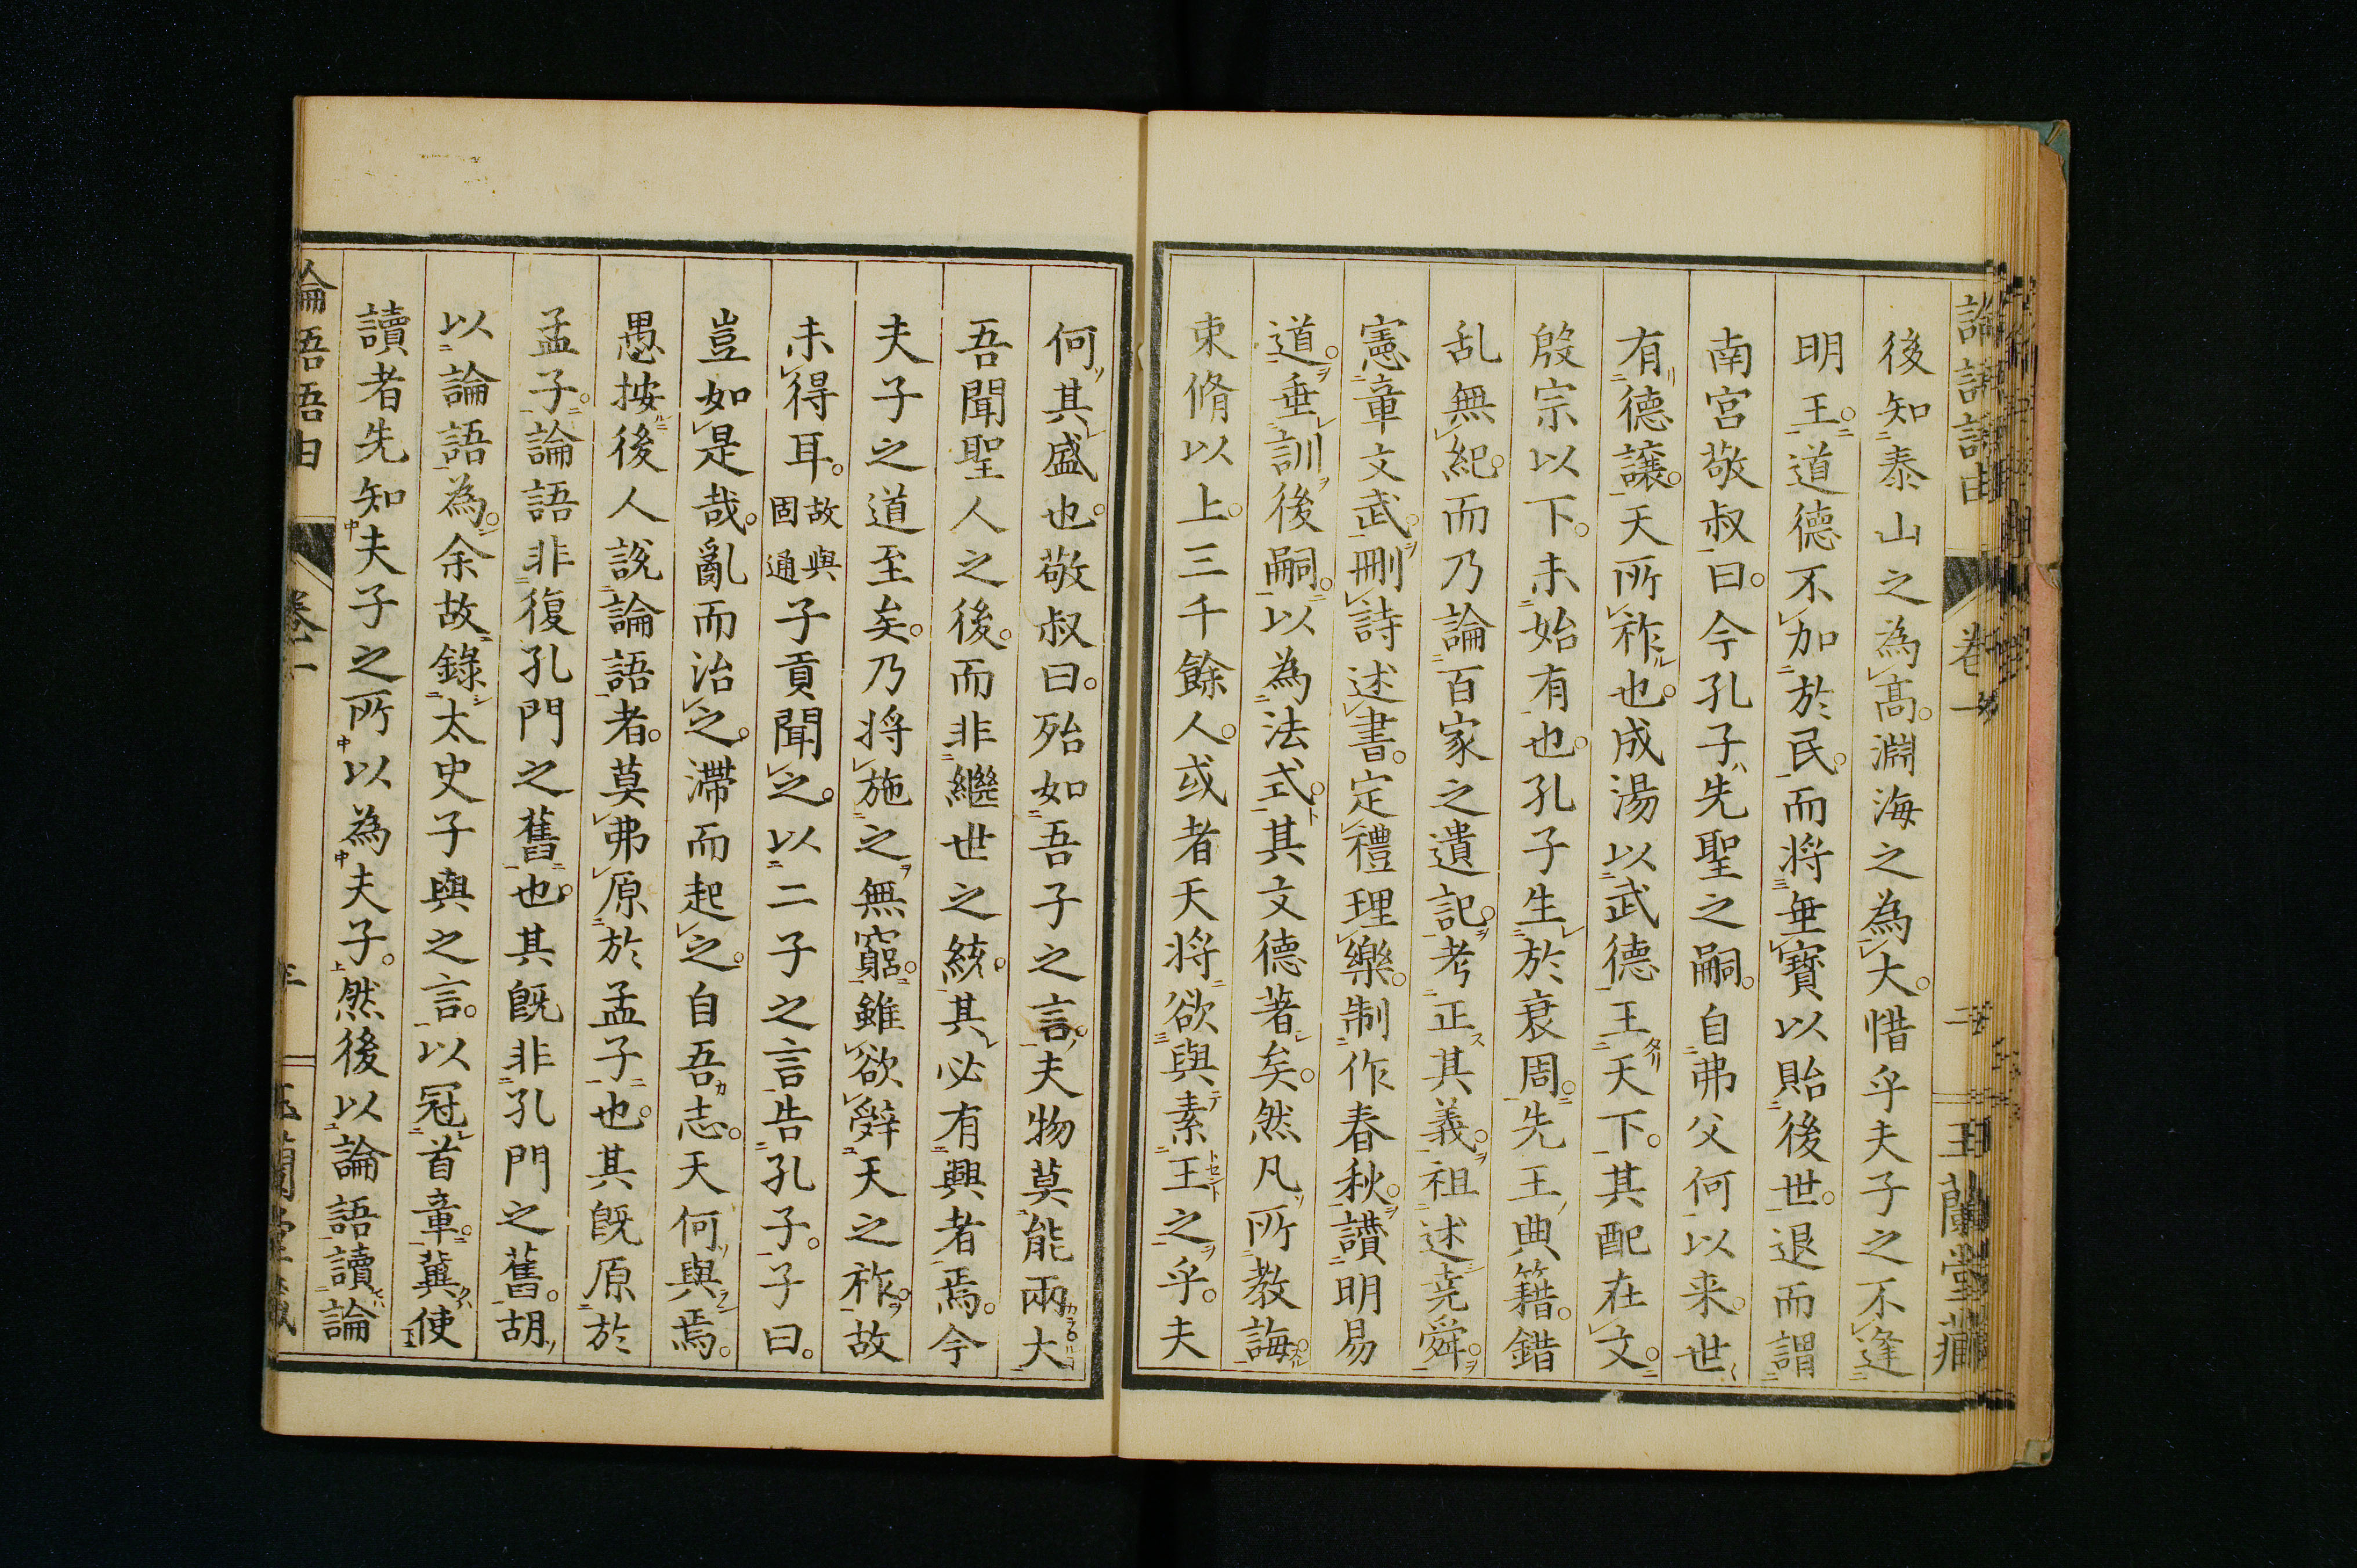 後知泰山之為高。淵海之為大。惜乎夫子之不逢
明王。道德不加於民。而将垂寳以貽後世。退而謂
南宮敬叔曰。今孔子先聖之嗣。自弗父何以来。世
有德讓。天所祚也。成湯以武德王天下。其配在文。
殷宗以下。未始有也。孔子生於衰周。先王典籍。錯
乱無紀。而乃論百家之遺記。考正其義。祖述堯舜。
憲章文武。刪詩述書。定禮理樂。制作春秋。讃明易
道。垂訓後嗣。以為法式。其文德著矣。然凡所教誨。
束脩以上。三千餘人。或者天将欲與素王之乎。夫
何其盛也。敬叔曰。殆如吾子之言。夫物莫能兩大
吾聞聖人之後。而非繼世之統。其必有興者焉。今
夫子之道至矣。乃将施之無窮。雖欲辭天之祚。故
未得耳。故與固通子貢聞之。以二子之言告孔子。子曰。
豈如是哉。亂而治之。滯而起之。自吾志。天何與焉。
愚按後人說論語者。莫弗原於孟子也。其既原於
孟子。論語非復孔門之舊也。其既非孔門之舊。胡
以論語為。余故錄太史子與之言。以冠首章。冀使
讀者先知夫子之所以為夫子。然後以論語讀論
論語語由
卷一
玉蘭堂藏